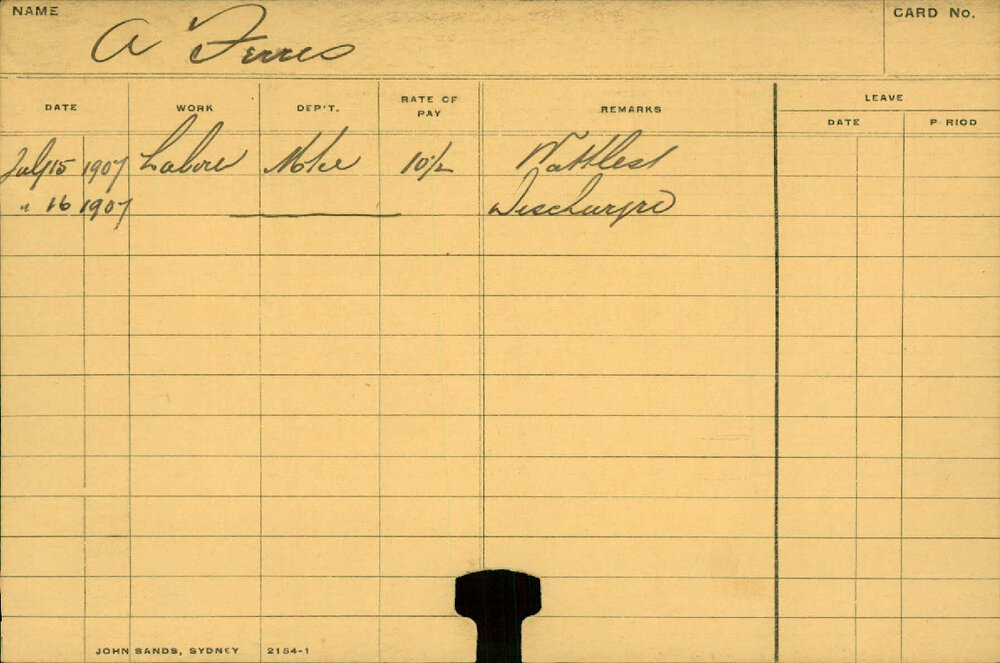 NAME
A Ferres
CARD No.
DATE WORK DEP'T. RATE OF PAY REMARKS LEAVE
DATE P RIOD
July 15 1907 Labore 10/2
" 16 1907 Discharge
JOHN SANDS, SYDNEY 2154-1